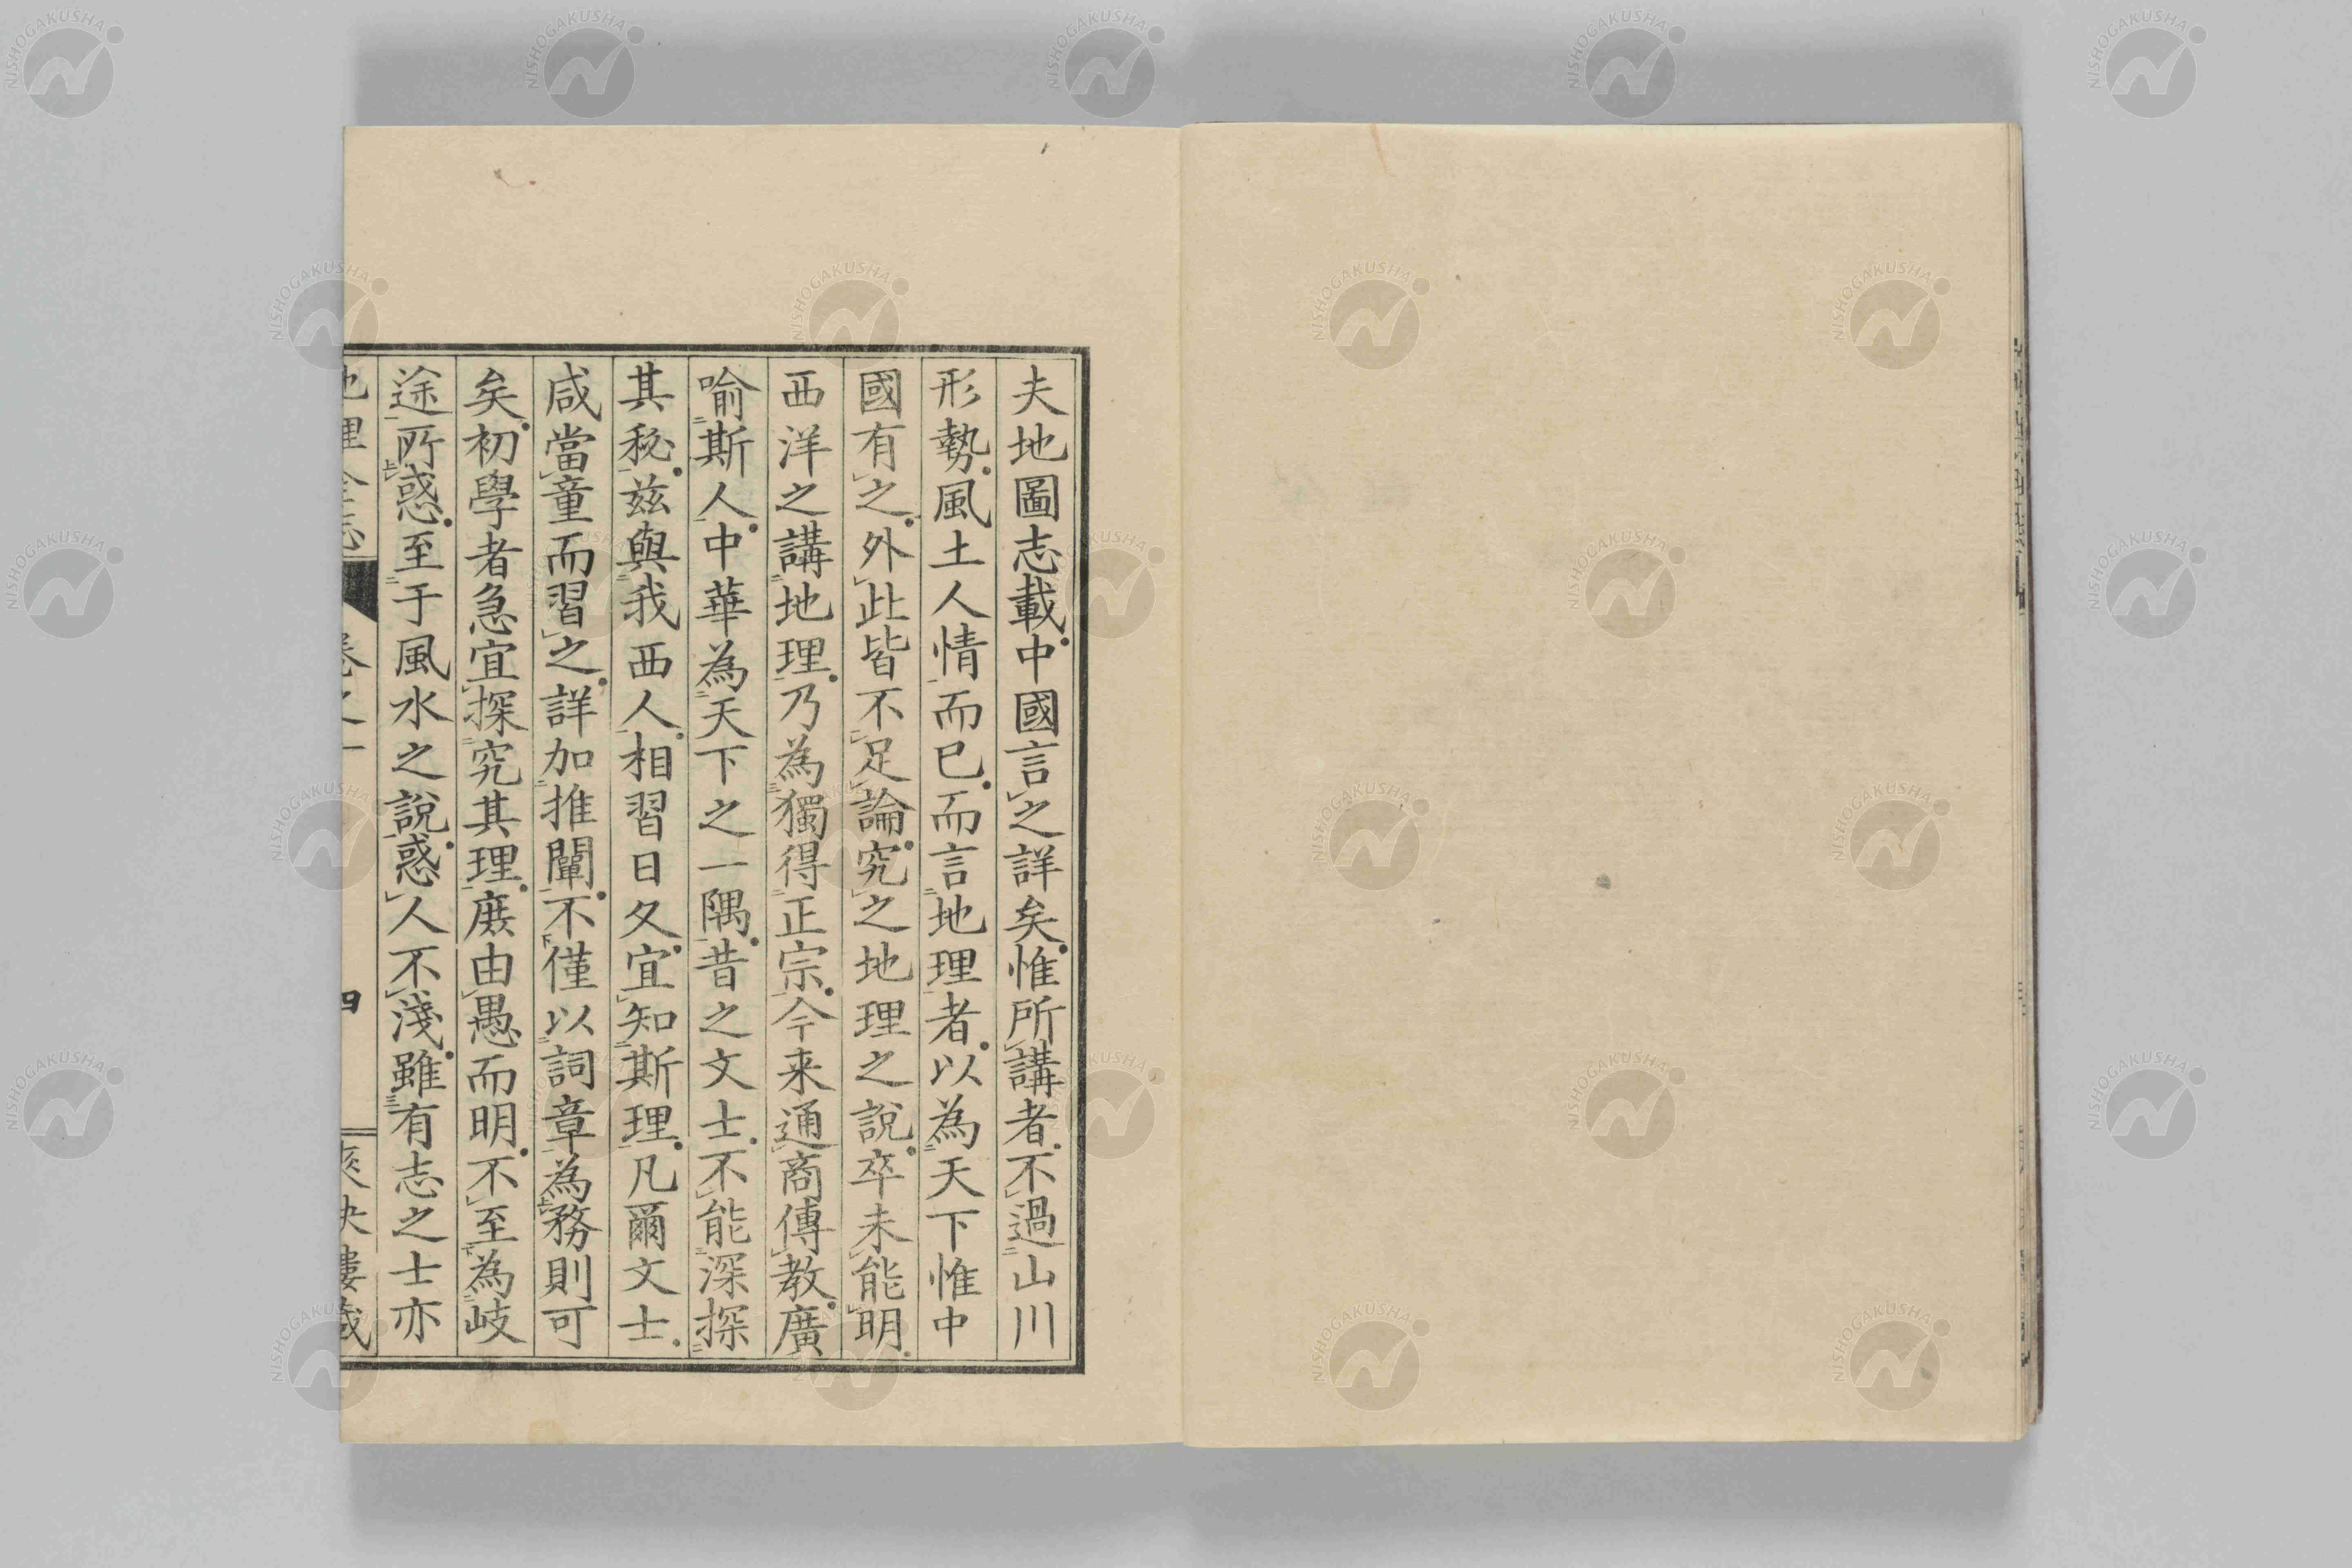 夫地圖志載中國言之詳矣惟所講者不過山川
形勢風土人情而已而言地理者以為天下惟中
國有之外此皆不足論究之地理之說卒未能明
西洋之講地理乃為獨得正宗今来通商傳教廣
喻斯人中華為天下之一隅昔之文士不能深探
其秘茲與我西人相習日久宜知斯理凡爾文士
咸當童而習之詳加推闡不僅以詞章為務則可
矣初學者急宜探究其理庶由愚而明不至為岐
途所惑至于風水之說惑人不淺雖有志之士亦
地理全志 卷之一 四
NISHOGAKUSHA